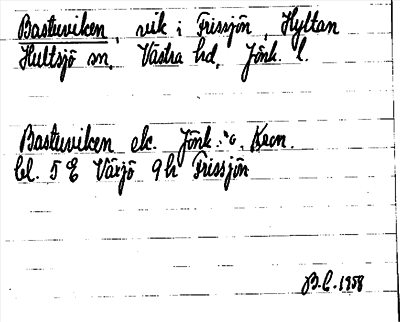 Bastuviken, vik i Frissjön, Hyltan
Hultsjö sn, Västra hd, Jönk. l.
Bastuviken ek. Jönk.
bl. 5 E Växjö 9 h Frissjön
B.L. 1958